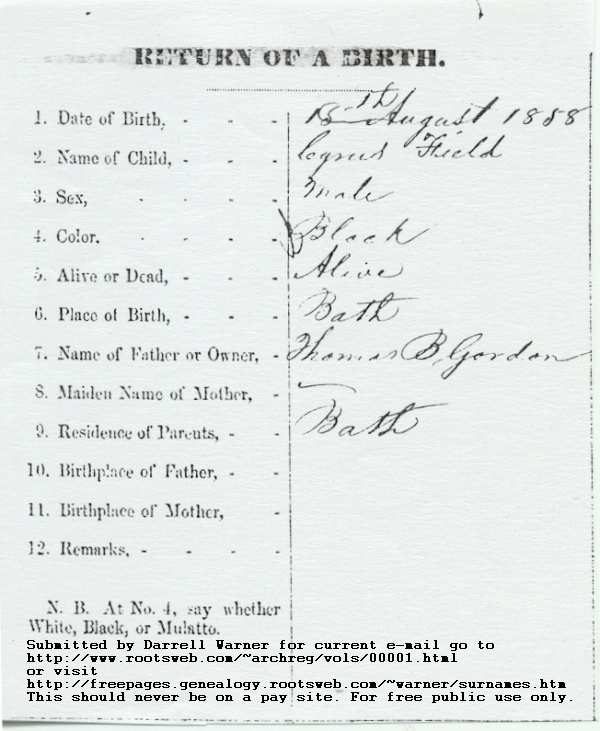 RETURN OF A BIRTH.
1. Date of Birth, - - - 15th August 1858
2. Name of Child, - - - Cyrus Field
3. Sex, - - - - Male
4. Color. - - - - Black
5. Alive or Dead, - - - Alive
6. Place of Birth, - - - Bath
7. Name of Father or Owner, - Thomas B. Gordon
8. Maiden Name of Mother, - —
9. Residence of Parents, - - Bath
10. Birthplace of Father, - -
11. Birthplace of Mother, -
12. Remarks, - - - -
N. B. At No. 4, say whether
White, Black, or Mulatto.
Submitted by Darrell Warner for current e-mail go to
http://www.rootsweb.com/~archreg/vols/00001.html
or visit
http://freepages.genealogy.rootsweb.com/~warner/surnames.htm
This should never be on a pay site. For free public use only.